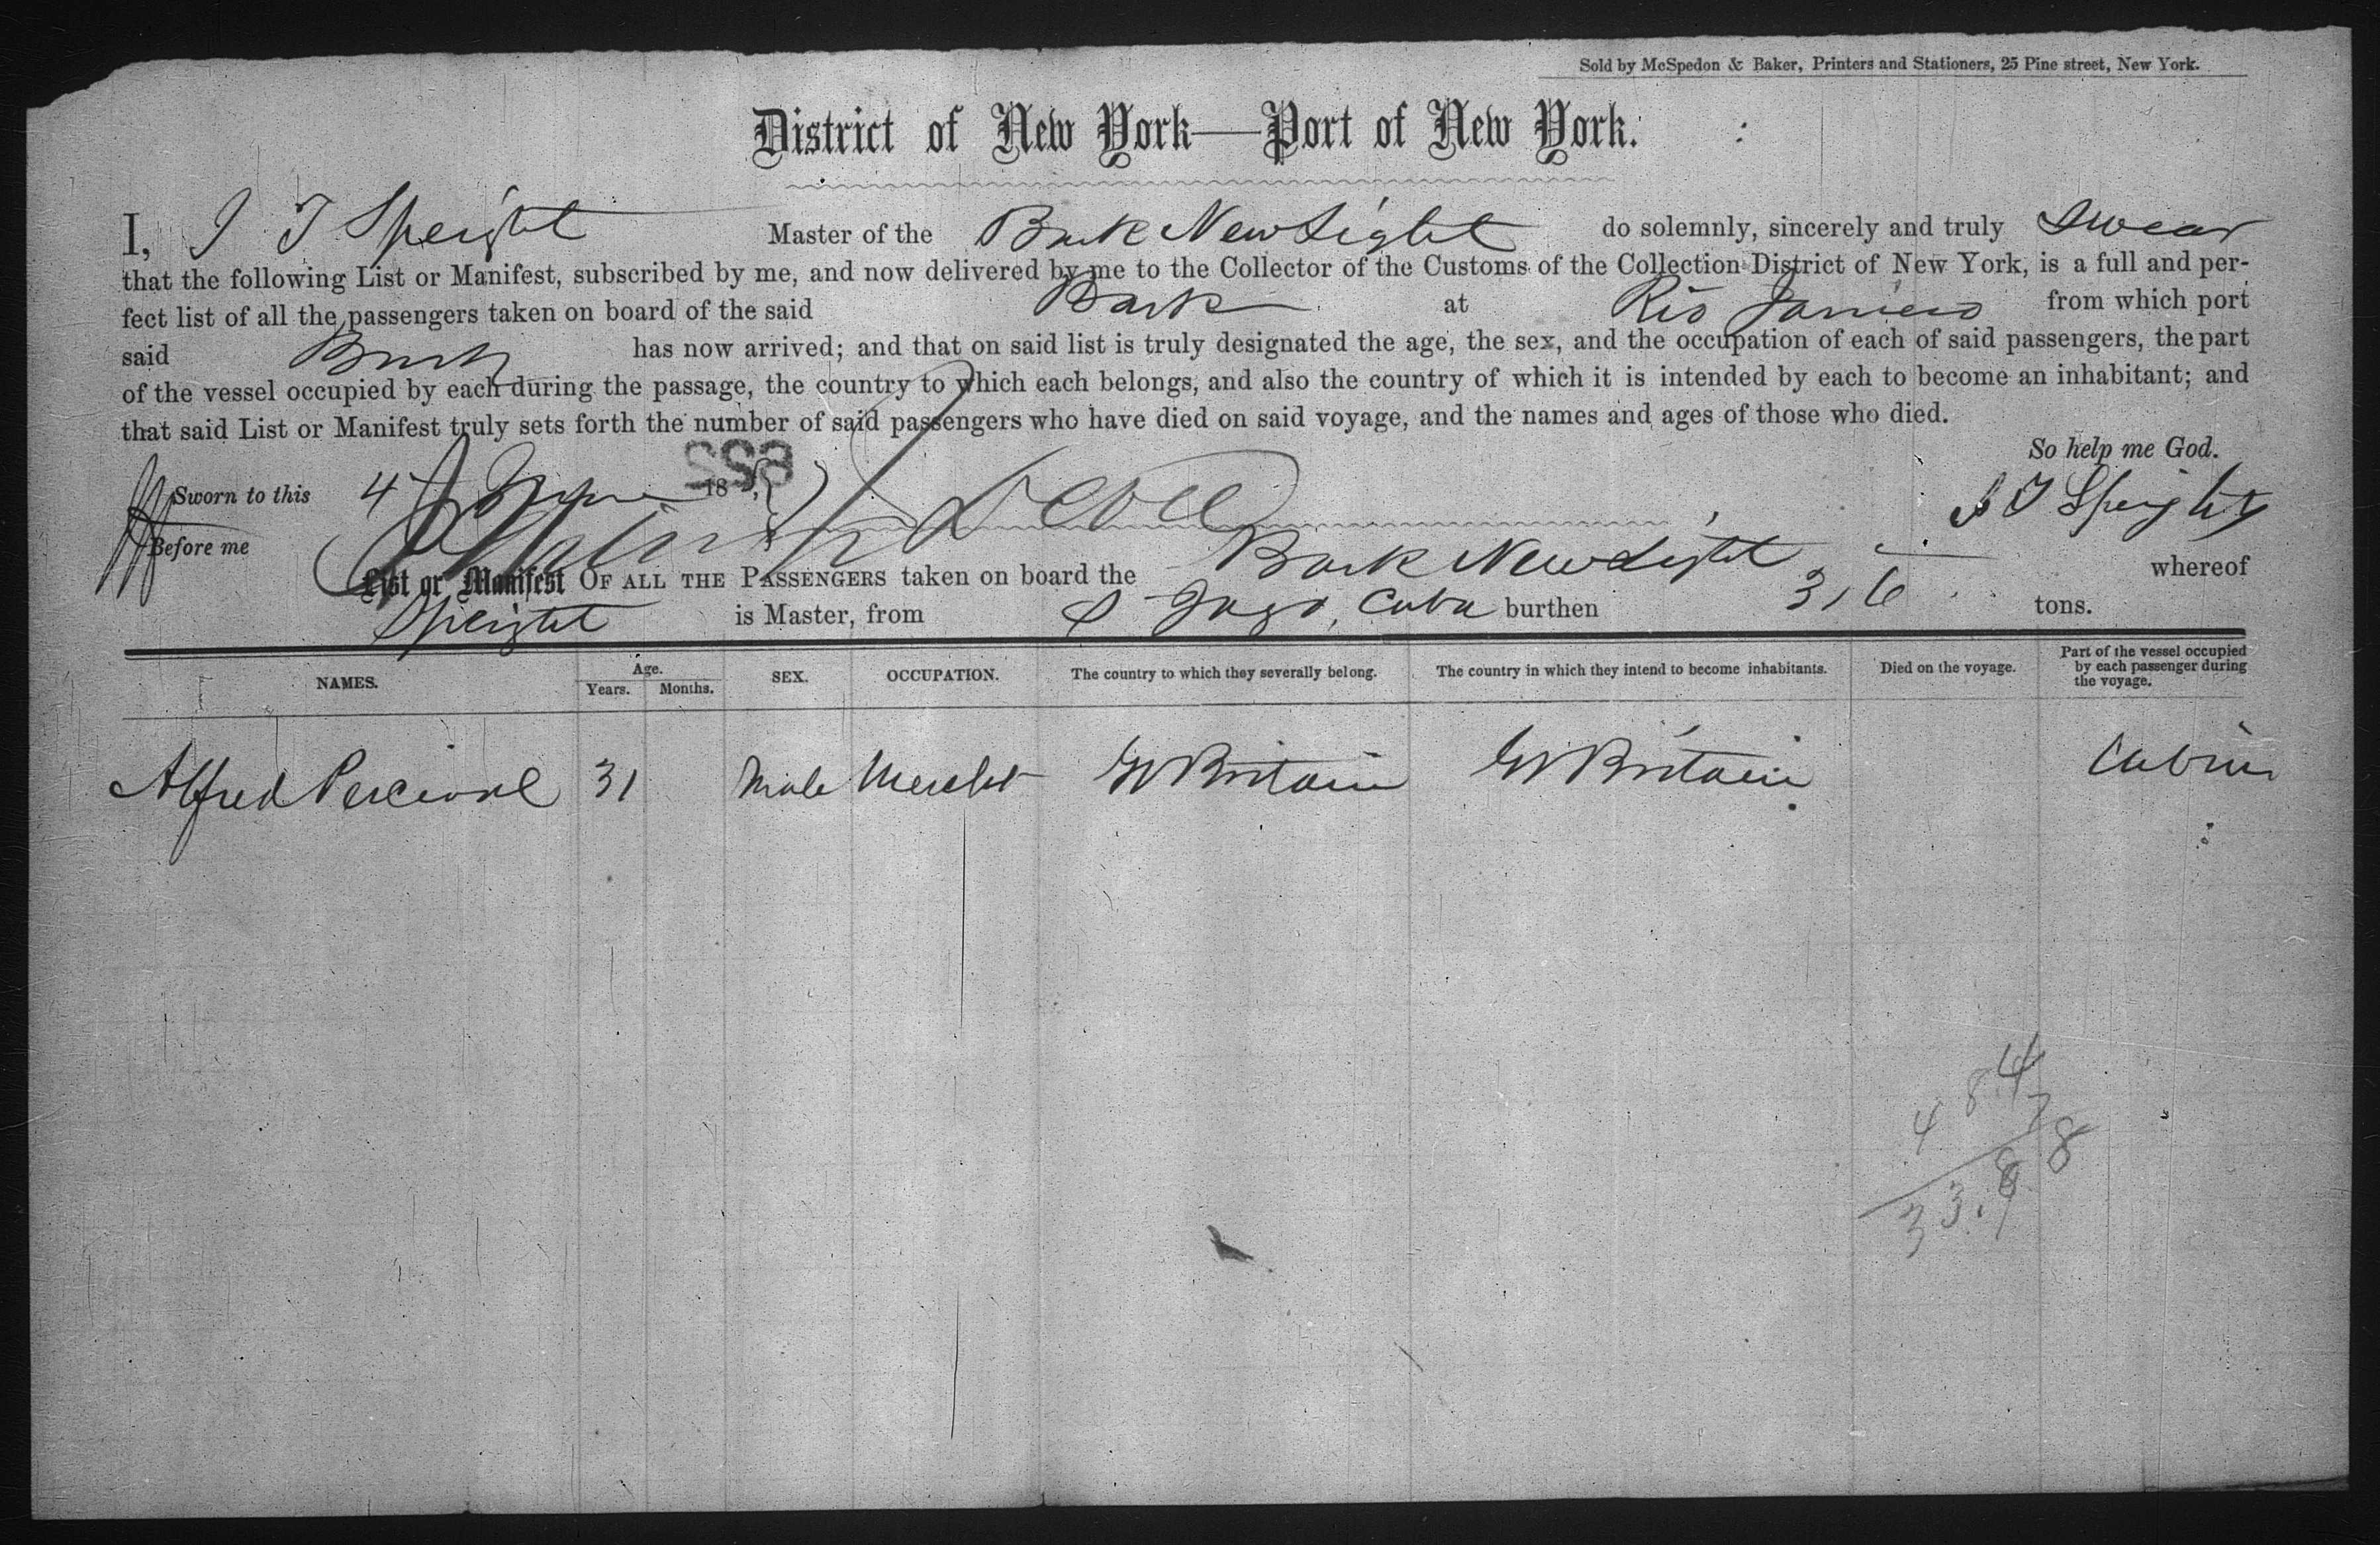 Sold by McSpedon & Baker, Printers and Stationers, 25 Pine street, New York.
District of New York—Port of New York.
I, J T Speight Master of the Bark New Light do solemnly, sincerely and truly swear
that the following List or Manifest, subscribed by me, and now delivered by me to the Collector of the Customs of the Collection District of New York, is a full and per-
fect list of all the passengers taken on board of the said Bark at Rio Janiero from which port
said Bark has now arrived; and that on said list is truly designated the age, the sex, and the occupation of each of said passengers, the part
of the vessel occupied by each during the passage, the country to which each belongs, and also the country of which it is intended by each to become an inhabitant; and
that said List or Manifest truly sets forth the number of said passengers who have died on said voyage, and the names and ages of those who died.
So help me God.
Sworn to this 4 18 J T Speight
Before me
List or Manifest OF ALL THE PASSENGERS taken on board the Bark New Light whereof
Speight is Master, from S Jago, Cuba burthen 316 tons.
NAMES. Age. Years. Months. SEX. OCCUPATION. The country to which they severally belong. The country in which they intend to become inhabitants. Died on the voyage. Part of the vessel occupied by each passenger during the voyage.
Alfred Percival 31 Male Mercht Gt Britain Gt Britain Cabin